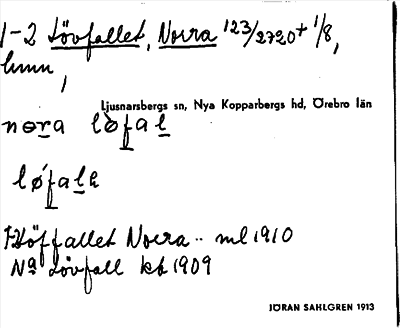 1-2 Lövfallet, Norra 123/2720 + 1/8,
hmn,
Ljusnarsbergs sn, Nya Kopparbergs hd, Örebro län
nora løfal
løfalə
Löffallet Norra .. ml 1910
Na Lövfall kk 1909
JÖRAN SAHLGREN 1913